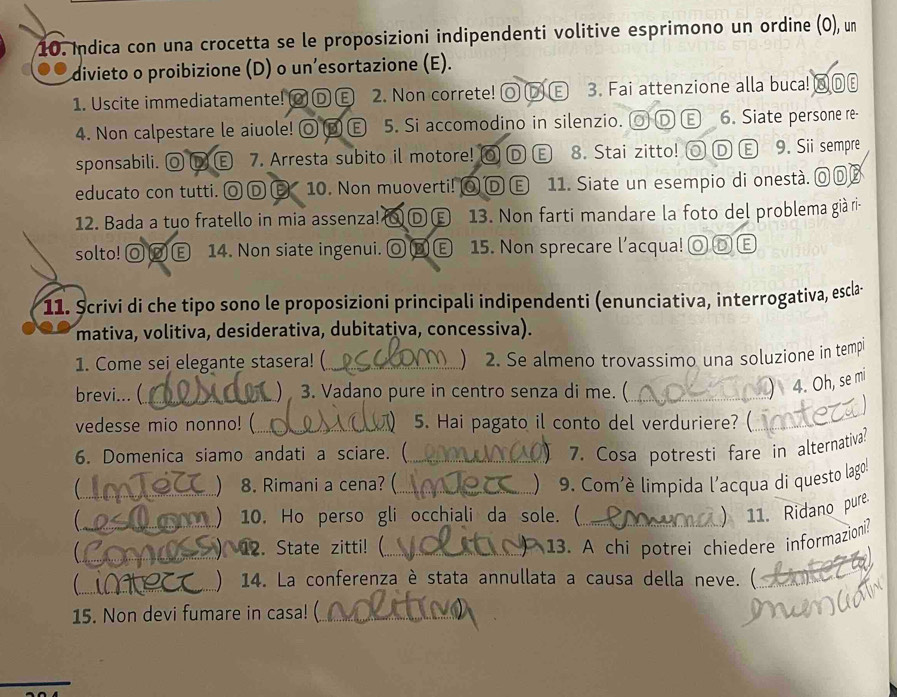 10. Indica con una crocetta se le proposizioni indipendenti volitive esprimono un ordine (O), un
divieto o proibizione (D) o un'esortazione (E).
1. Uscite immediatamente! O D E 2. Non correte! O D E 3. Fai attenzione alla buca! O D E
4. Non calpestare le aiuole! O D E 5. Si accomodino in silenzio. O D E 6. Siate persone re-
sponsabili. O D E 7. Arresta subito il motore! O D E 8. Stai zitto! O D E 9. Sii sempre
educato con tutti. O D E 10. Non muoverti! O D E 11. Siate un esempio di onestà. O D E
12. Bada a tuo fratello in mia assenza! O D E 13. Non farti mandare la foto del problema già ri-
solto! O D E 14. Non siate ingenui. O D E 15. Non sprecare l'acqua! O D E
11. Scrivi di che tipo sono le proposizioni principali indipendenti (enunciativa, interrogativa, escla-
mativa, volitiva, desiderativa, dubitativa, concessiva).
1. Come sei elegante stasera! (esclam) 2. Se almeno trovassimo una soluzione in tempi
brevi... (desider) 3. Vadano pure in centro senza di me. (volitiva) 4. Oh, se mi
vedesse mio nonno! (desider) 5. Hai pagato il conto del verduriere? (interr)
6. Domenica siamo andati a sciare. (enunciat) 7. Cosa potresti fare in alternativa?
(interr) 8. Rimani a cena? (interr) 9. Com'è limpida l'acqua di questo lago!
(esclam) 10. Ho perso gli occhiali da sole. (enuncia) 11. Ridano pure.
(concessiva) 12. State zitti! (volitiva) 13. A chi potrei chiedere informazioni?
(interr) 14. La conferenza è stata annullata a causa della neve. (
15. Non devi fumare in casa! (volitiva)